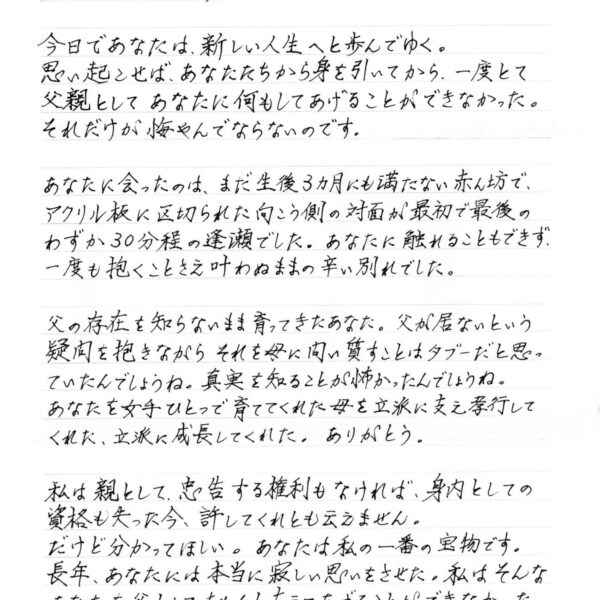 今日であなたは、新しい人生へと歩んでゆく。
思い起こせば、あなたたちから身を引いてから、一度とて
父親として あなたに何もしてあげることができなかった。
それだけが悔やんでならないのです。
あなたに会ったのは、まだ生後3カ月にも満たない赤ん坊で、
アクリル板に区切られた向こう側の対面が最初で最後の
わずか30分程の逢瀬でした。あなたに触れることもできず、
一度も抱くことさえ叶わぬままの辛い別れでした。
父の存在を知らないまま育ってきたあなた。父が居ないという
疑問を抱きながら それを母に問い質すことはタブーだと思っ
ていたんでしょうね。真実を知ることが怖かったんでしょうね。
あなたを女手ひとつで育ててくれた母を立派に支え孝行して
くれた、立派に成長してくれた。ありがとう。
私は親として、忠告する権利もなければ、身内としての
資格も失った今、許してくれとも云えません。
だけど分かってほしい。あなたは私の一番の宝物です。
長年、あなたには本当に寂しい思いをさせた。私はそんな